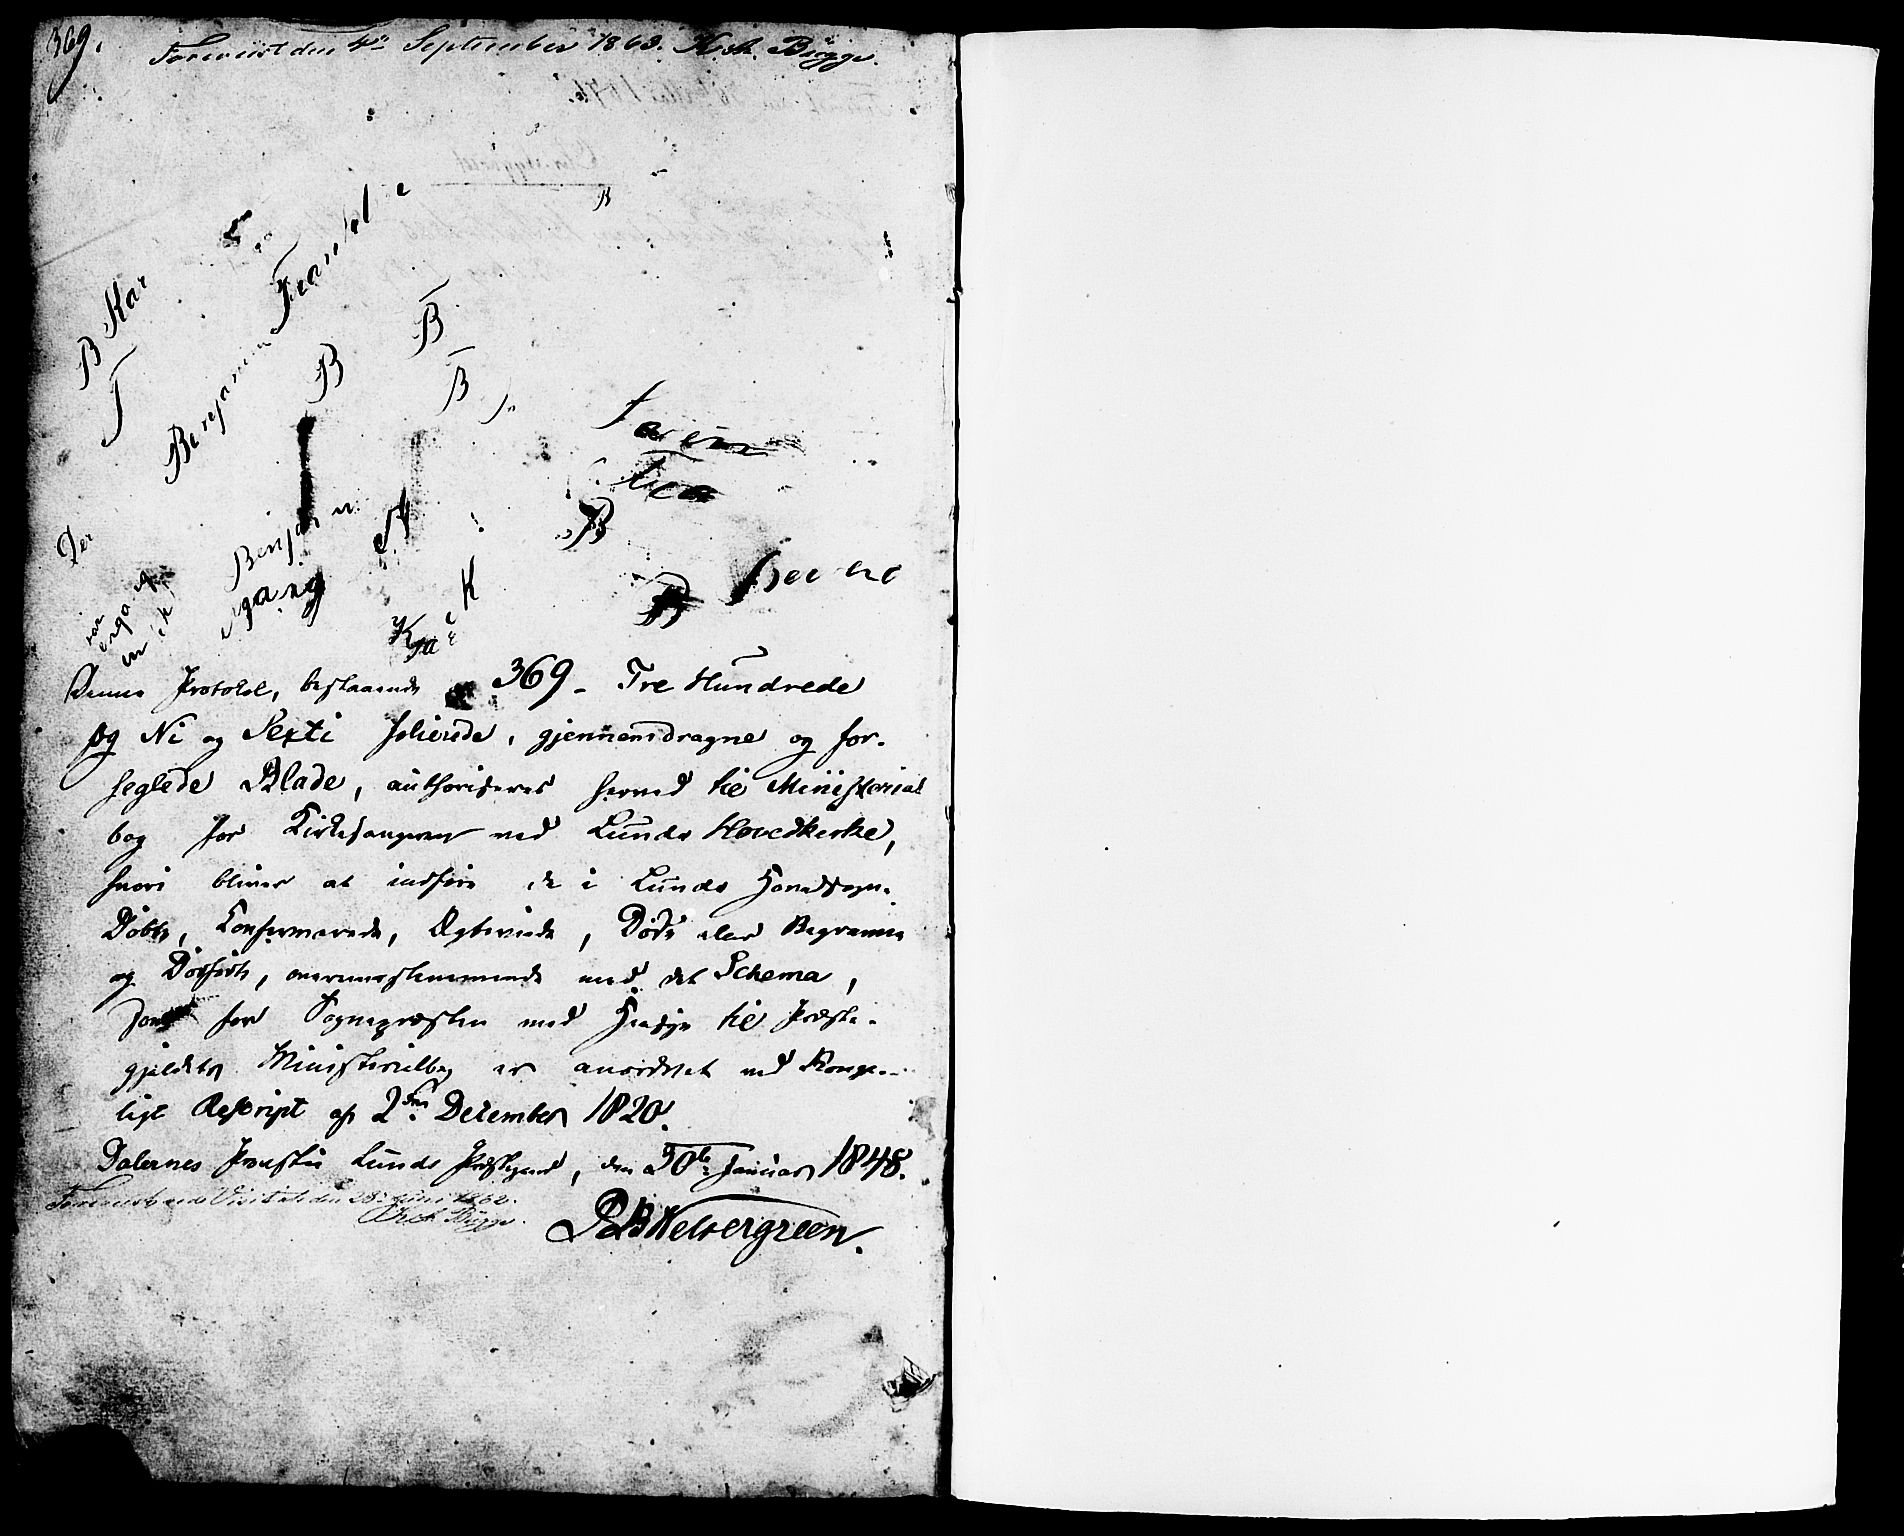 369.
Foreviist den 4de September 1863. Kr. A. Bügge.
B Kar
T
Benjamin Frantsel e
B
B
B
B
Der
Benjamin
egang
K
K
B
B
Denne Protokol, bestaaende af 369 - Tre Hundrede
og Ni og Sexti folierede, gjennemdragne og for-
seglede Blade, authoriseres herved til Ministerial
bog for Kirkesangeren ved Lunds Hovedkirke,
hvori bliver at indføre de i Lunds Hovedsogn
Døbte, Konfirmerede, Ægteviede, Døde eller Begravne
og Dødfødte, overensstemmende med det Schema,
som for Sognepræsten med Hensyn til Præste-
gjeldets Ministerialbog er anordnet ved Konge-
ligt Rescript af 2den December 1820.
Dalernes Provstie Lunds Præstegaard, den 30te Januar 1848.
Foreviist ved Visitats den 28 Juni 1862.
Kr. A. Bügge.
P. B. Wettergreen.